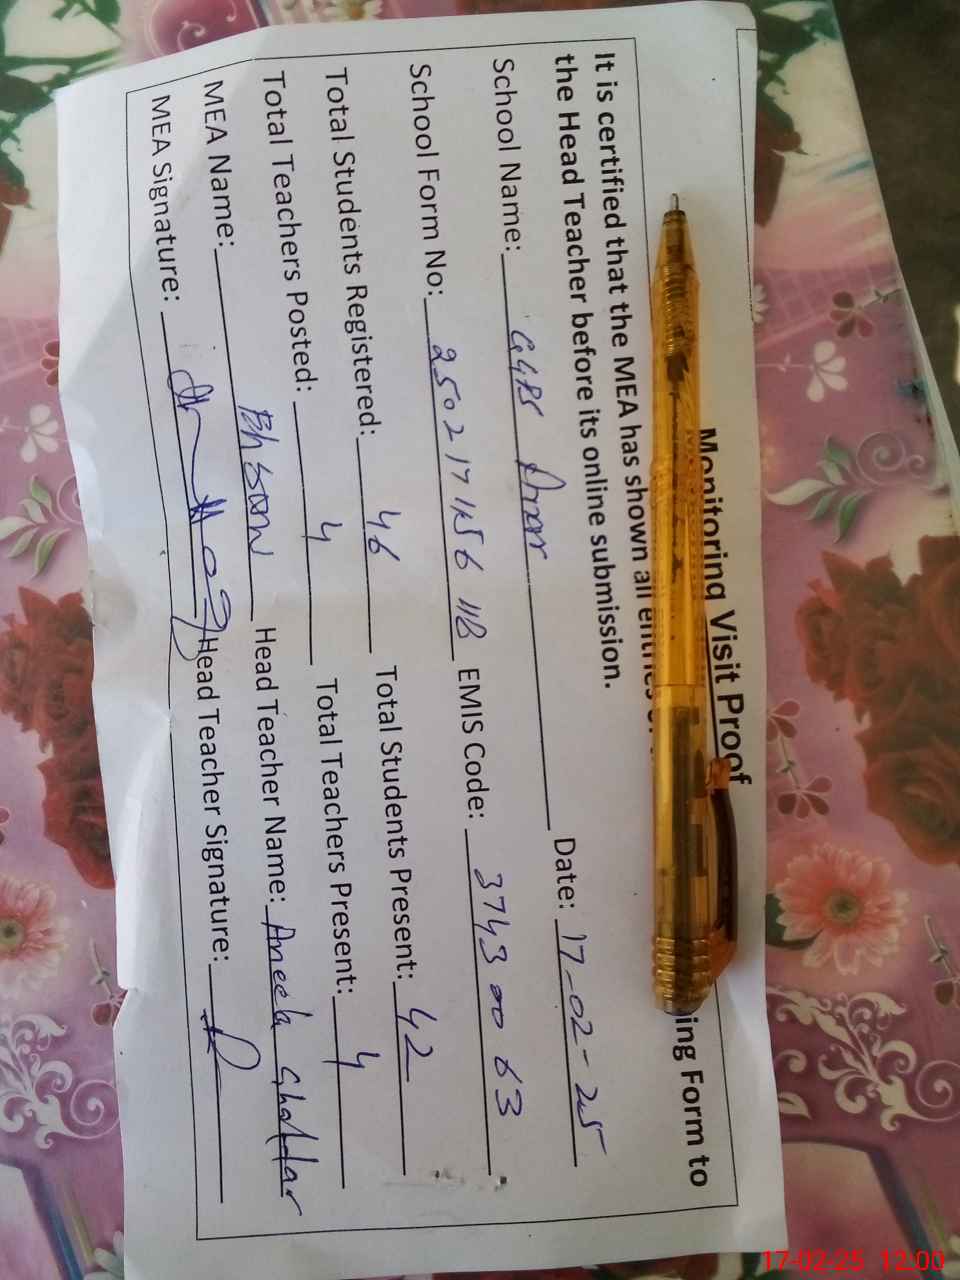 Monitoring Visit Proof
It is certified that the MEA has shown all entries ing Form to
the Head Teacher before its online submission.
School Name: GGPS Date: 17-02-25
School Form No: EMIS Code: 37430063
Total Students Registered: 46 Total Students Present: 42
Total Teachers Posted: 4 Total Teachers Present: 4
MEA Name: Head Teacher Name: Aneela
MEA Signature: Head Teacher Signature:
17-02-25 12:00